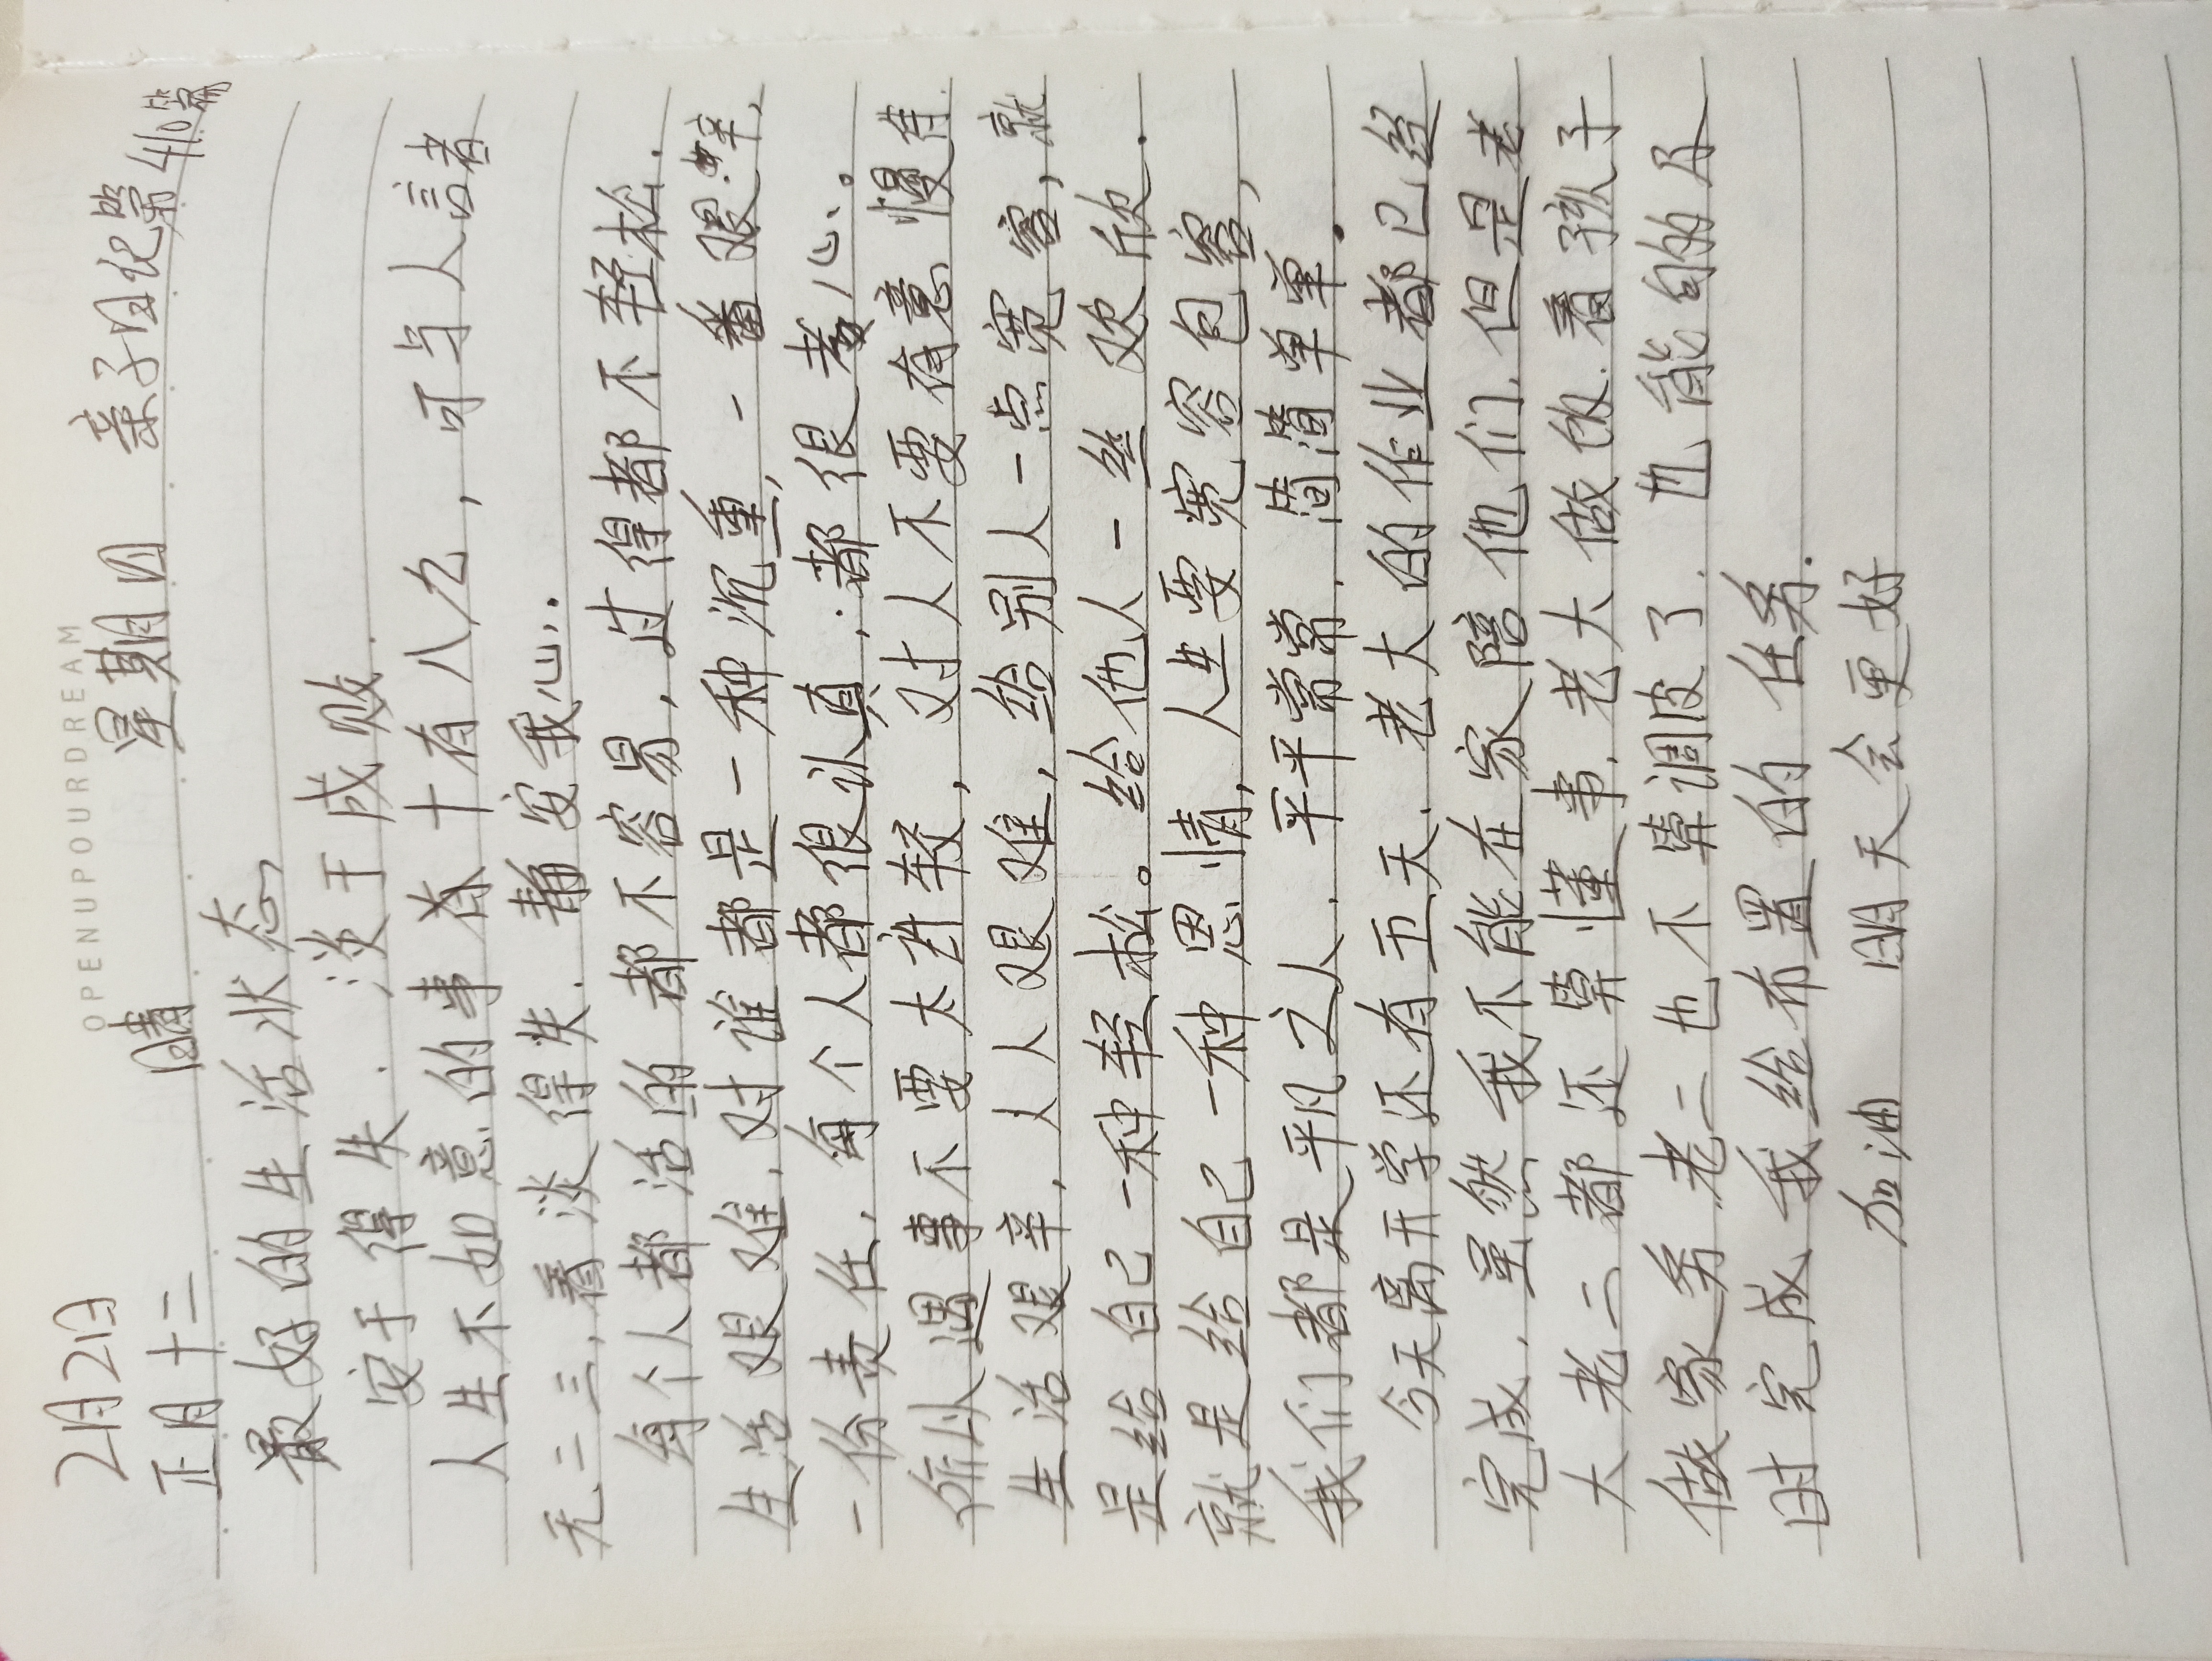 OPENUPOURDREAM
2月21日 晴 星期四 亲子日记第410篇
正月十二
最好的生活状态
安于得失. 淡于成败.
人生不如意的事春十有八九, 可与人言者
无二三, 看淡得失. 静安我心,.
每个人都活的都不容易, 过得都不轻松.
生活艰难, 对谁都是一种沉重, 一番艰辛,
一份责任, 每个人都很认真, 都很老心、。
所以遇事不要太计较, 对人不要有意慢待.
生活艰辛, 人人艰难, 给别人一点宽容, 就
是给自己一种轻松。给他人一丝欢欣.
就是给自己一种恩情, 人生要宽容包容,
我们都是平凡之人. 平平常常. 简简单单.
今天离开学还有五天. 老大的作业都已经
完成, 虽然我不能在家陪他们. 但是老
大老二都还算懂事. 老大做饭. 看孩子
做家务. 老二也不算调皮了. 也能的
时完成我给布置的任务.
加油 明天会更好